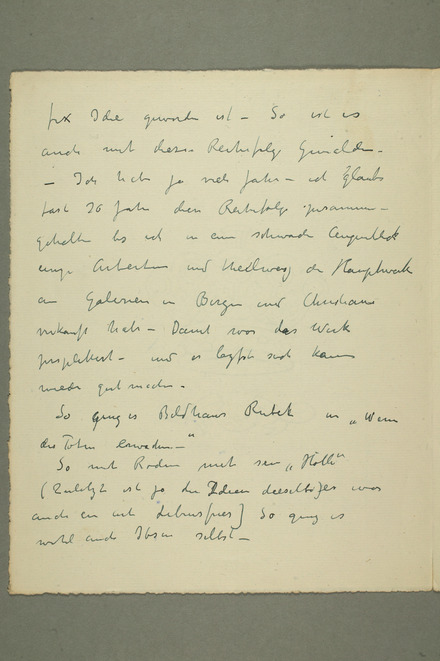 fix Idee geworden ist – So ist es
auch mit dieser Reihefolge Gemälden –
– Ich habe ja viele Jahre – ich glaube
fast 30 Jahre diese Reihefolge zusammen –
gehalten bis ich in ein schwachen Augenblick
einige Arbeiten und theilweise der Hauptwerke
an Galerien in Bergen und Christiania
verkauft habe – Damit war das Werk
zersplittert – und es kaum
wieder gut machen –
So ging es Bildhauer Rubek in „Wenn
die Toten erwachen –“
So mit Rodin mit sein „Hölle“
(Zuletzt ist ja die Ideen dieselbe) es war
auch ein Art Lebensfries) So ging es
wohl auch Ibsen selbst –